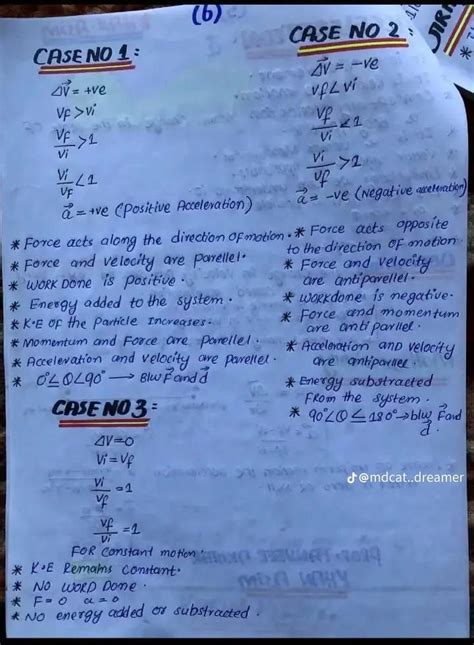 (6)
CASE NO 1:
ΔV⃗ = +ve
Vf > Vi
Vf/Vi > 1
Vi/Vf < 1
a⃗ = +ve (Positive Acceleration)
* Force acts along the direction of motion.
* Force and velocity are parellel.
* WORK DONE is Positive.
* Energy added to the system.
* K.E of the Particle Increases.
* Momentum and Force are parellel.
* Acceleration and velocity are parellel.
* 0°∠θ∠90° → B/w F⃗ and d⃗
CASE NO 2
ΔV⃗ = -ve
Vf ∠ Vi
Vf/Vi < 1
Vi/Vf > 1
a⃗ = -ve (Negative acceleration)
* Force acts opposite
to the direction of motion
* Force and velocity
are antiparellel.
* Workdone is negative.
* Force and momentum
are anti parllel.
* Acceleration AND velocity
are antiparllel.
* Energy substracted
From the system.
* 90°∠θ ≤ 180° → b/w F⃗ and
d⃗.
CASE NO 3:
ΔV=0
Vi = Vf
Vi/Vf = 1
Vf/Vi = 1
FOR Constant motion:
* K.E Remains Constant.
* NO WORD Done.
* F=0 a=0
* NO energy added or substracted.
@mdcat..dreamer